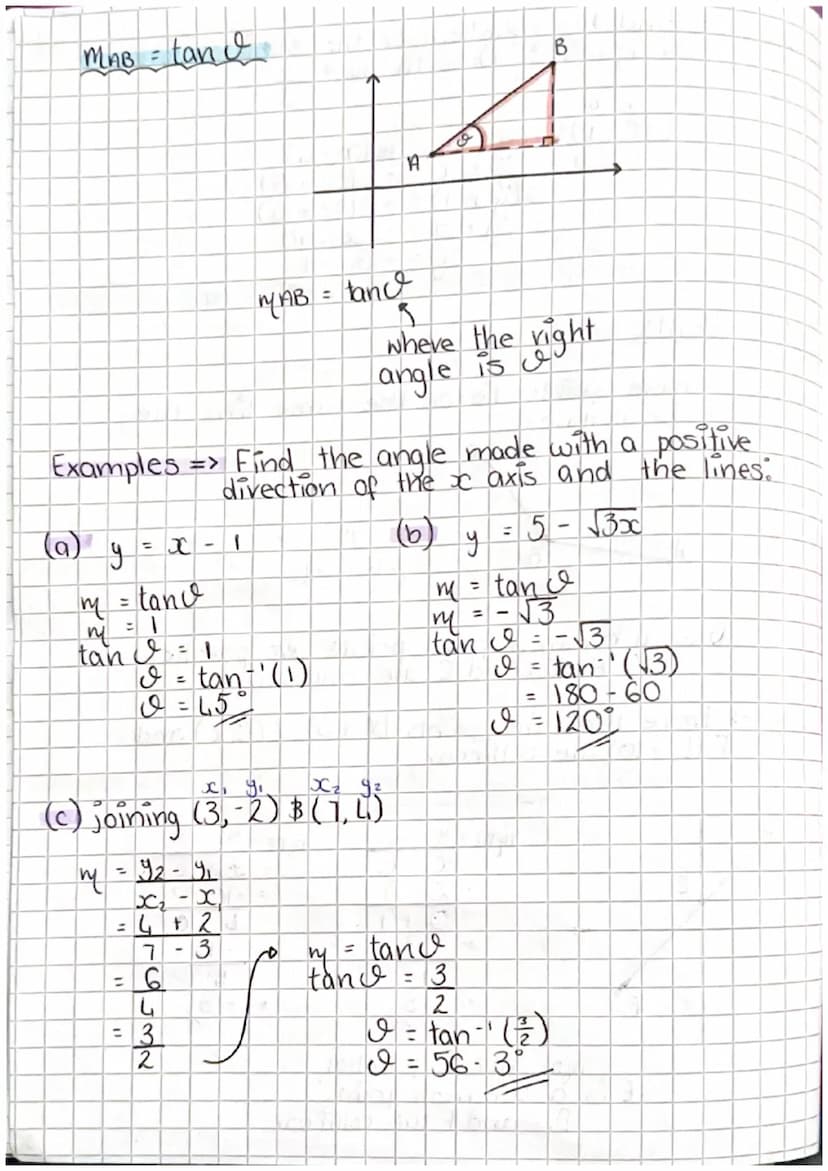 mAB = tan θ
B
A
θ
mAB = tan θ
where the right
angle is θ
Examples => Find the angle made with a positive
direction of the x axis and the lines:
(a) y = x - 1
m = tan θ
m = 1
tan θ = 1
θ = tan⁻¹(1)
θ = 45°
(b) y = 5 - √3x
m = tan θ
m = -√3
tan θ = -√3
θ = tan⁻¹(√3)
= 180 - 60
θ = 120°
x₁ y₁ x₂ y₂
(c) joining (3, -2) & (7, 4)
m = y₂ - y₁
x₂ - x₁
= 4 + 2
7 - 3
= 6
4
= 3
2
m = tan θ
tan θ = 3
2
θ = tan⁻¹(3/2)
θ = 56.3°